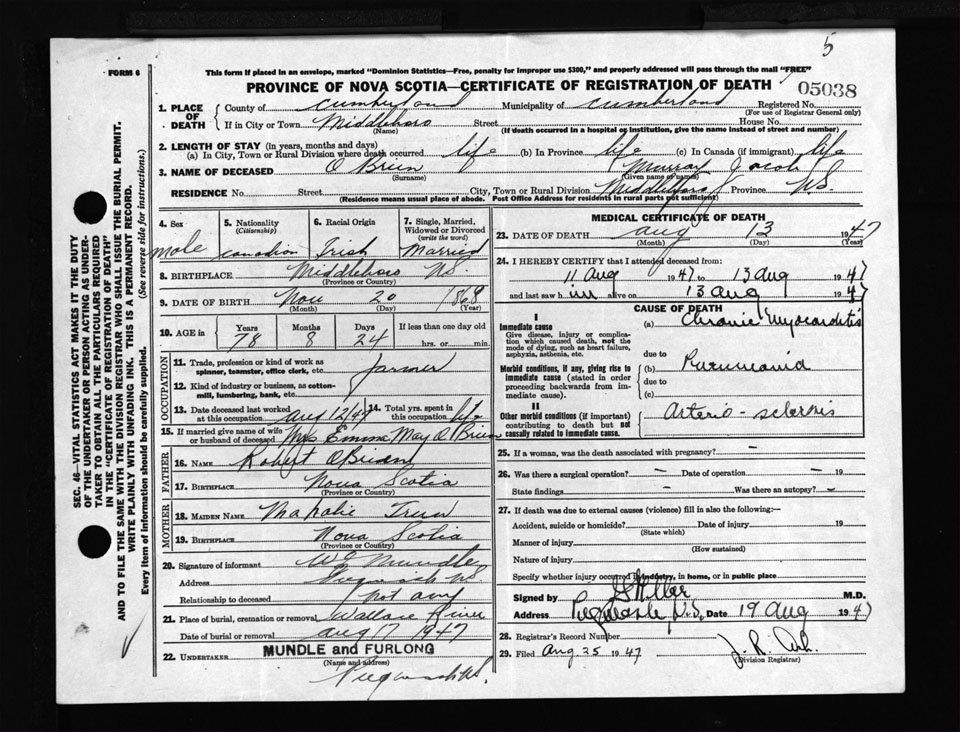 5
FORM 6
This form if placed in an envelope, marked "Dominion Statistics—Free, penalty for improper use $300," and properly addressed will pass through the mail "FREE"
PROVINCE OF NOVA SCOTIA—CERTIFICATE OF REGISTRATION OF DEATH
05038
1. PLACE OF DEATH
County of Cumberland Municipality of Cumberland Registered No.
(For use of Registrar General only)
If in City or Town Middleboro Street House No.
(Name) (If death occurred in a hospital or institution, give the name instead of street and number)
2. LENGTH OF STAY (in years, months and days)
(a) In City, Town or Rural Division where death occurred life (b) In Province life (c) In Canada (if immigrant) life
3. NAME OF DECEASED O'Brien Murray Jacob
(Surname) (Given name or names)
RESIDENCE No. Street City, Town or Rural Division Middleboro Province N.S.
(Residence means usual place of abode. Post Office Address for residents in rural parts not sufficient)
4. Sex
male
5. Nationality
(Citizenship)
Canadian
6. Racial Origin
Irish
7. Single, Married, Widowed or Divorced
(write the word)
Married
8. BIRTHPLACE Middleboro N.S.
(Province or Country)
9. DATE OF BIRTH Nov 20 1868
(Month) (Day) (Year)
10. AGE in
Years Months Days If less than one day old
78 8 24 hrs. or min.
OCCUPATION
11. Trade, profession or kind of work as spinner, teamster, office clerk, etc. farmer
12. Kind of industry or business, as cotton-mill, lumbering, bank, etc.
13. Date deceased last worked at this occupation Aug 12/47
14. Total yrs. spent in this occupation life
15. If married give name of wife or husband of deceased Mrs Emma May O'Brien
FATHER
16. NAME Robert O'Brian
17. BIRTHPLACE Nova Scotia
(Province or Country)
MOTHER
18. MAIDEN NAME
19. BIRTHPLACE Nova Scotia
(Province or Country)
20. Signature of informant Mundle
Address Pugwash N.S.
Relationship to deceased not any
21. Place of burial, cremation or removal Wallace River
Date of burial or removal Aug 17 1947
22. UNDERTAKER MUNDLE and FURLONG
(Name and address)
Pugwash N.S.
MEDICAL CERTIFICATE OF DEATH
23. DATE OF DEATH Aug 13 1947
(Month) (Day) (Year)
24. I HEREBY CERTIFY that I attended deceased from:
11 Aug 1947 to 13 Aug 1947
and last saw him alive on 13 Aug 1947
CAUSE OF DEATH
I
Immediate cause
Give disease, injury or complication which caused death, not the mode of dying, such as heart failure, asphyxia, asthenia, etc.
(a) Chronic Myocarditis
due to
Morbid conditions, if any, giving rise to immediate cause (stated in order proceeding backwards from immediate cause).
(b) Pneumonia
due to
(c)
II
Other morbid conditions (if important) contributing to death but not causally related to immediate cause.
Arterio-sclerosis
25. If a woman, was the death associated with pregnancy? –
26. Was there a surgical operation? – Date of operation – 19
State findings Was there an autopsy? –
27. If death was due to external causes (violence) fill in also the following:—
Accident, suicide or homicide? Date of injury 19
(State which)
Manner of injury
(How sustained)
Nature of injury
Specify whether injury occurred in industry, in home, or in public place
Signed by M.D.
Address Pugwash N.S. Date 19 Aug 1947
28. Registrar's Record Number
29. Filed Aug 25 1947 J. R.
(Division Registrar)
SEC. 46—VITAL STATISTICS ACT MAKES IT THE DUTY OF THE UNDERTAKER OR PERSON ACTING AS UNDERTAKER TO OBTAIN ALL THE PARTICULARS REQUIRED IN THE "CERTIFICATE OF REGISTRATION OF DEATH"
AND TO FILE THE SAME WITH THE DIVISION REGISTRAR WHO SHALL ISSUE THE BURIAL PERMIT.
WRITE PLAINLY WITH UNFADING INK. THIS IS A PERMANENT RECORD.
Every item of information should be carefully supplied. (See reverse side for instructions.)